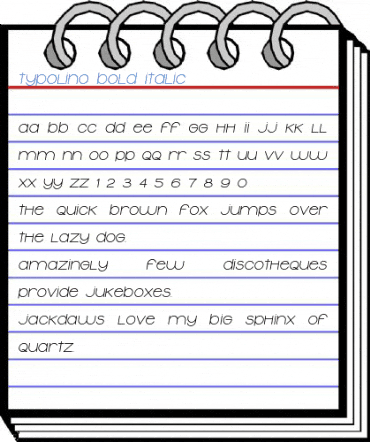 Typolino Bold Italic
aa bb cc dd ee ff GG HH ii JJ KK LL
mm nn oo pp QQ rr ss TT uu vv ww
xx yy zz 1 2 3 4 5 6 7 8 9 0
THe Quick brown fox Jumps over
THe Lazy doG.
amazinGLy few discoTHeQues
provide JuKeboxes.
JacKdaws Love my biG spHinx of
QuarTz.